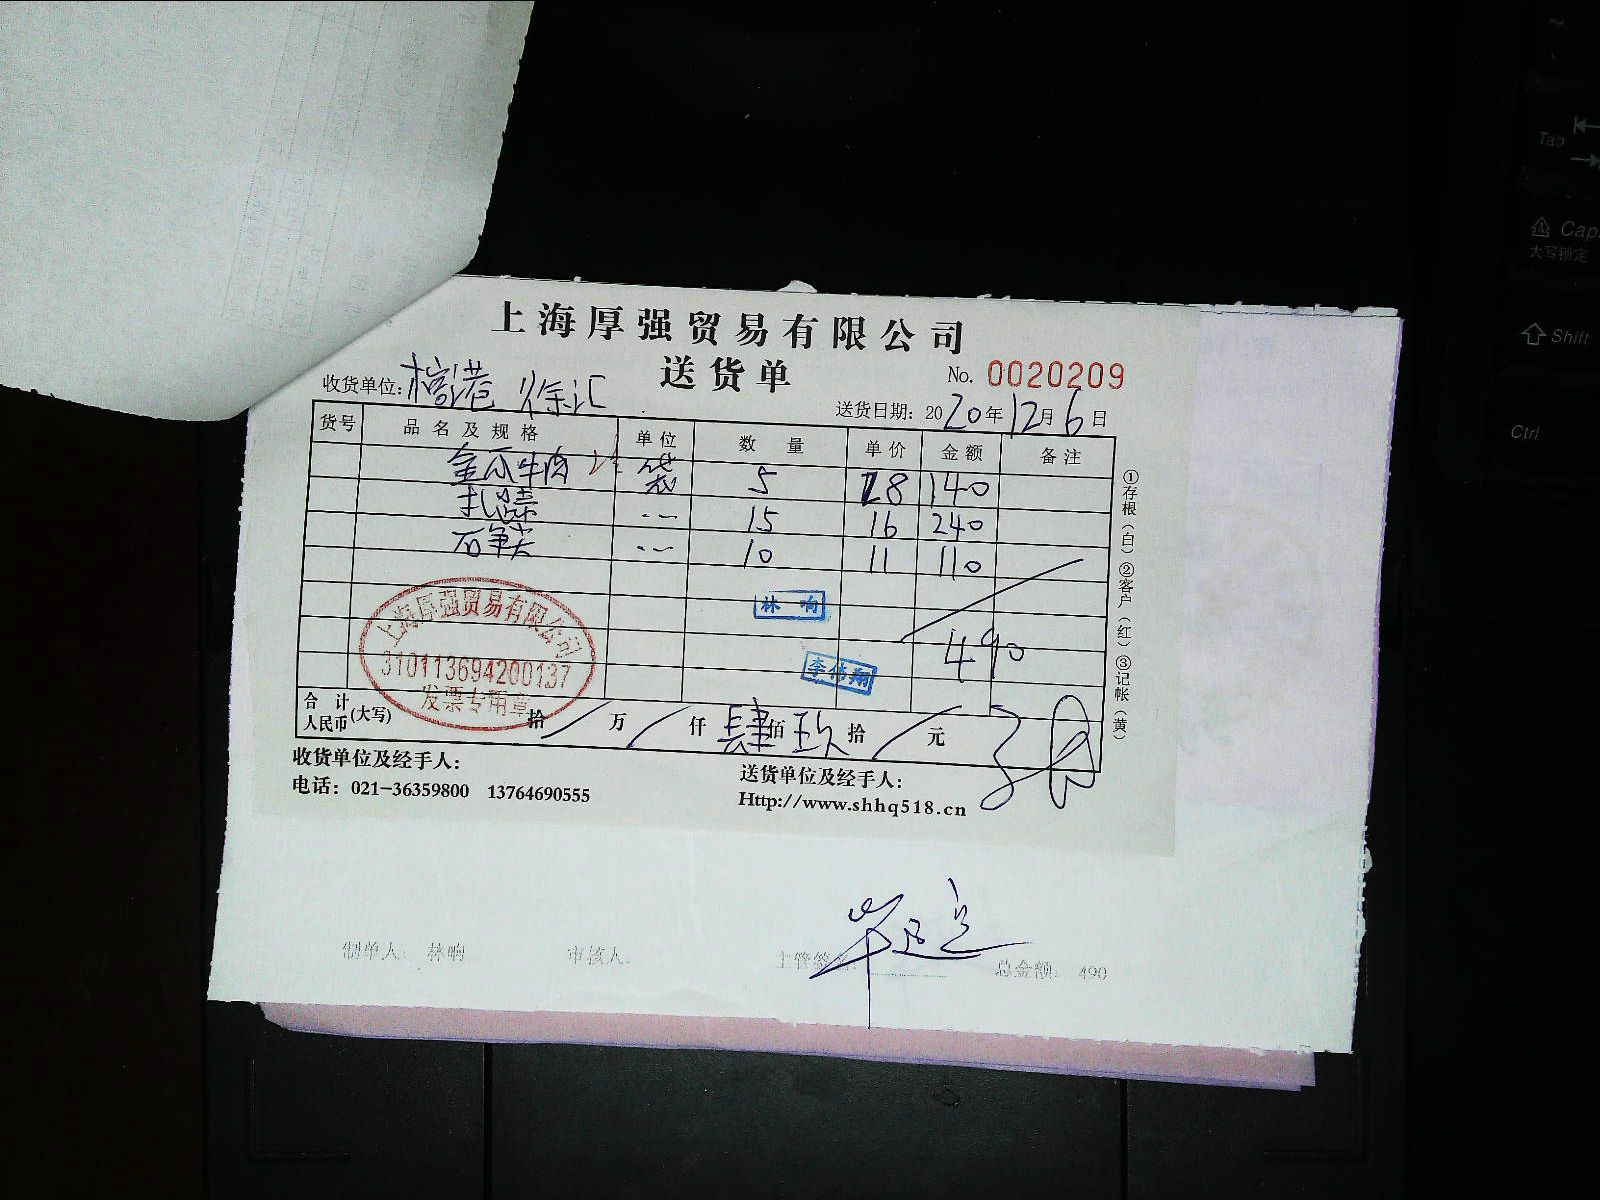 上海厚强贸易有限公司
送货单
No. 0020209
收货单位: 港 徐汇
送货日期: 2020年12月6日
货号 品名及规格 单位 数量 单价 金额 备注
牛肉 袋 5 28 140
扎 15 16 240
石笋尖 10 11 110
490
上海厚强贸易有限公司
310113694200137
发票专用章
林 响
李伟翔
合计人民币(大写) 拾 万 仟 肆佰玖拾 元
收货单位及经手人:
电话: 021-36359800 13764690555
送货单位及经手人:
Http://www.shhq518.cn
①存根(白)②客户(红)③记帐(黄)
制单人: 林响 审核人: 主管签名: 总金额: 490
Tab
Caps
大写锁定
Shift
Ctrl